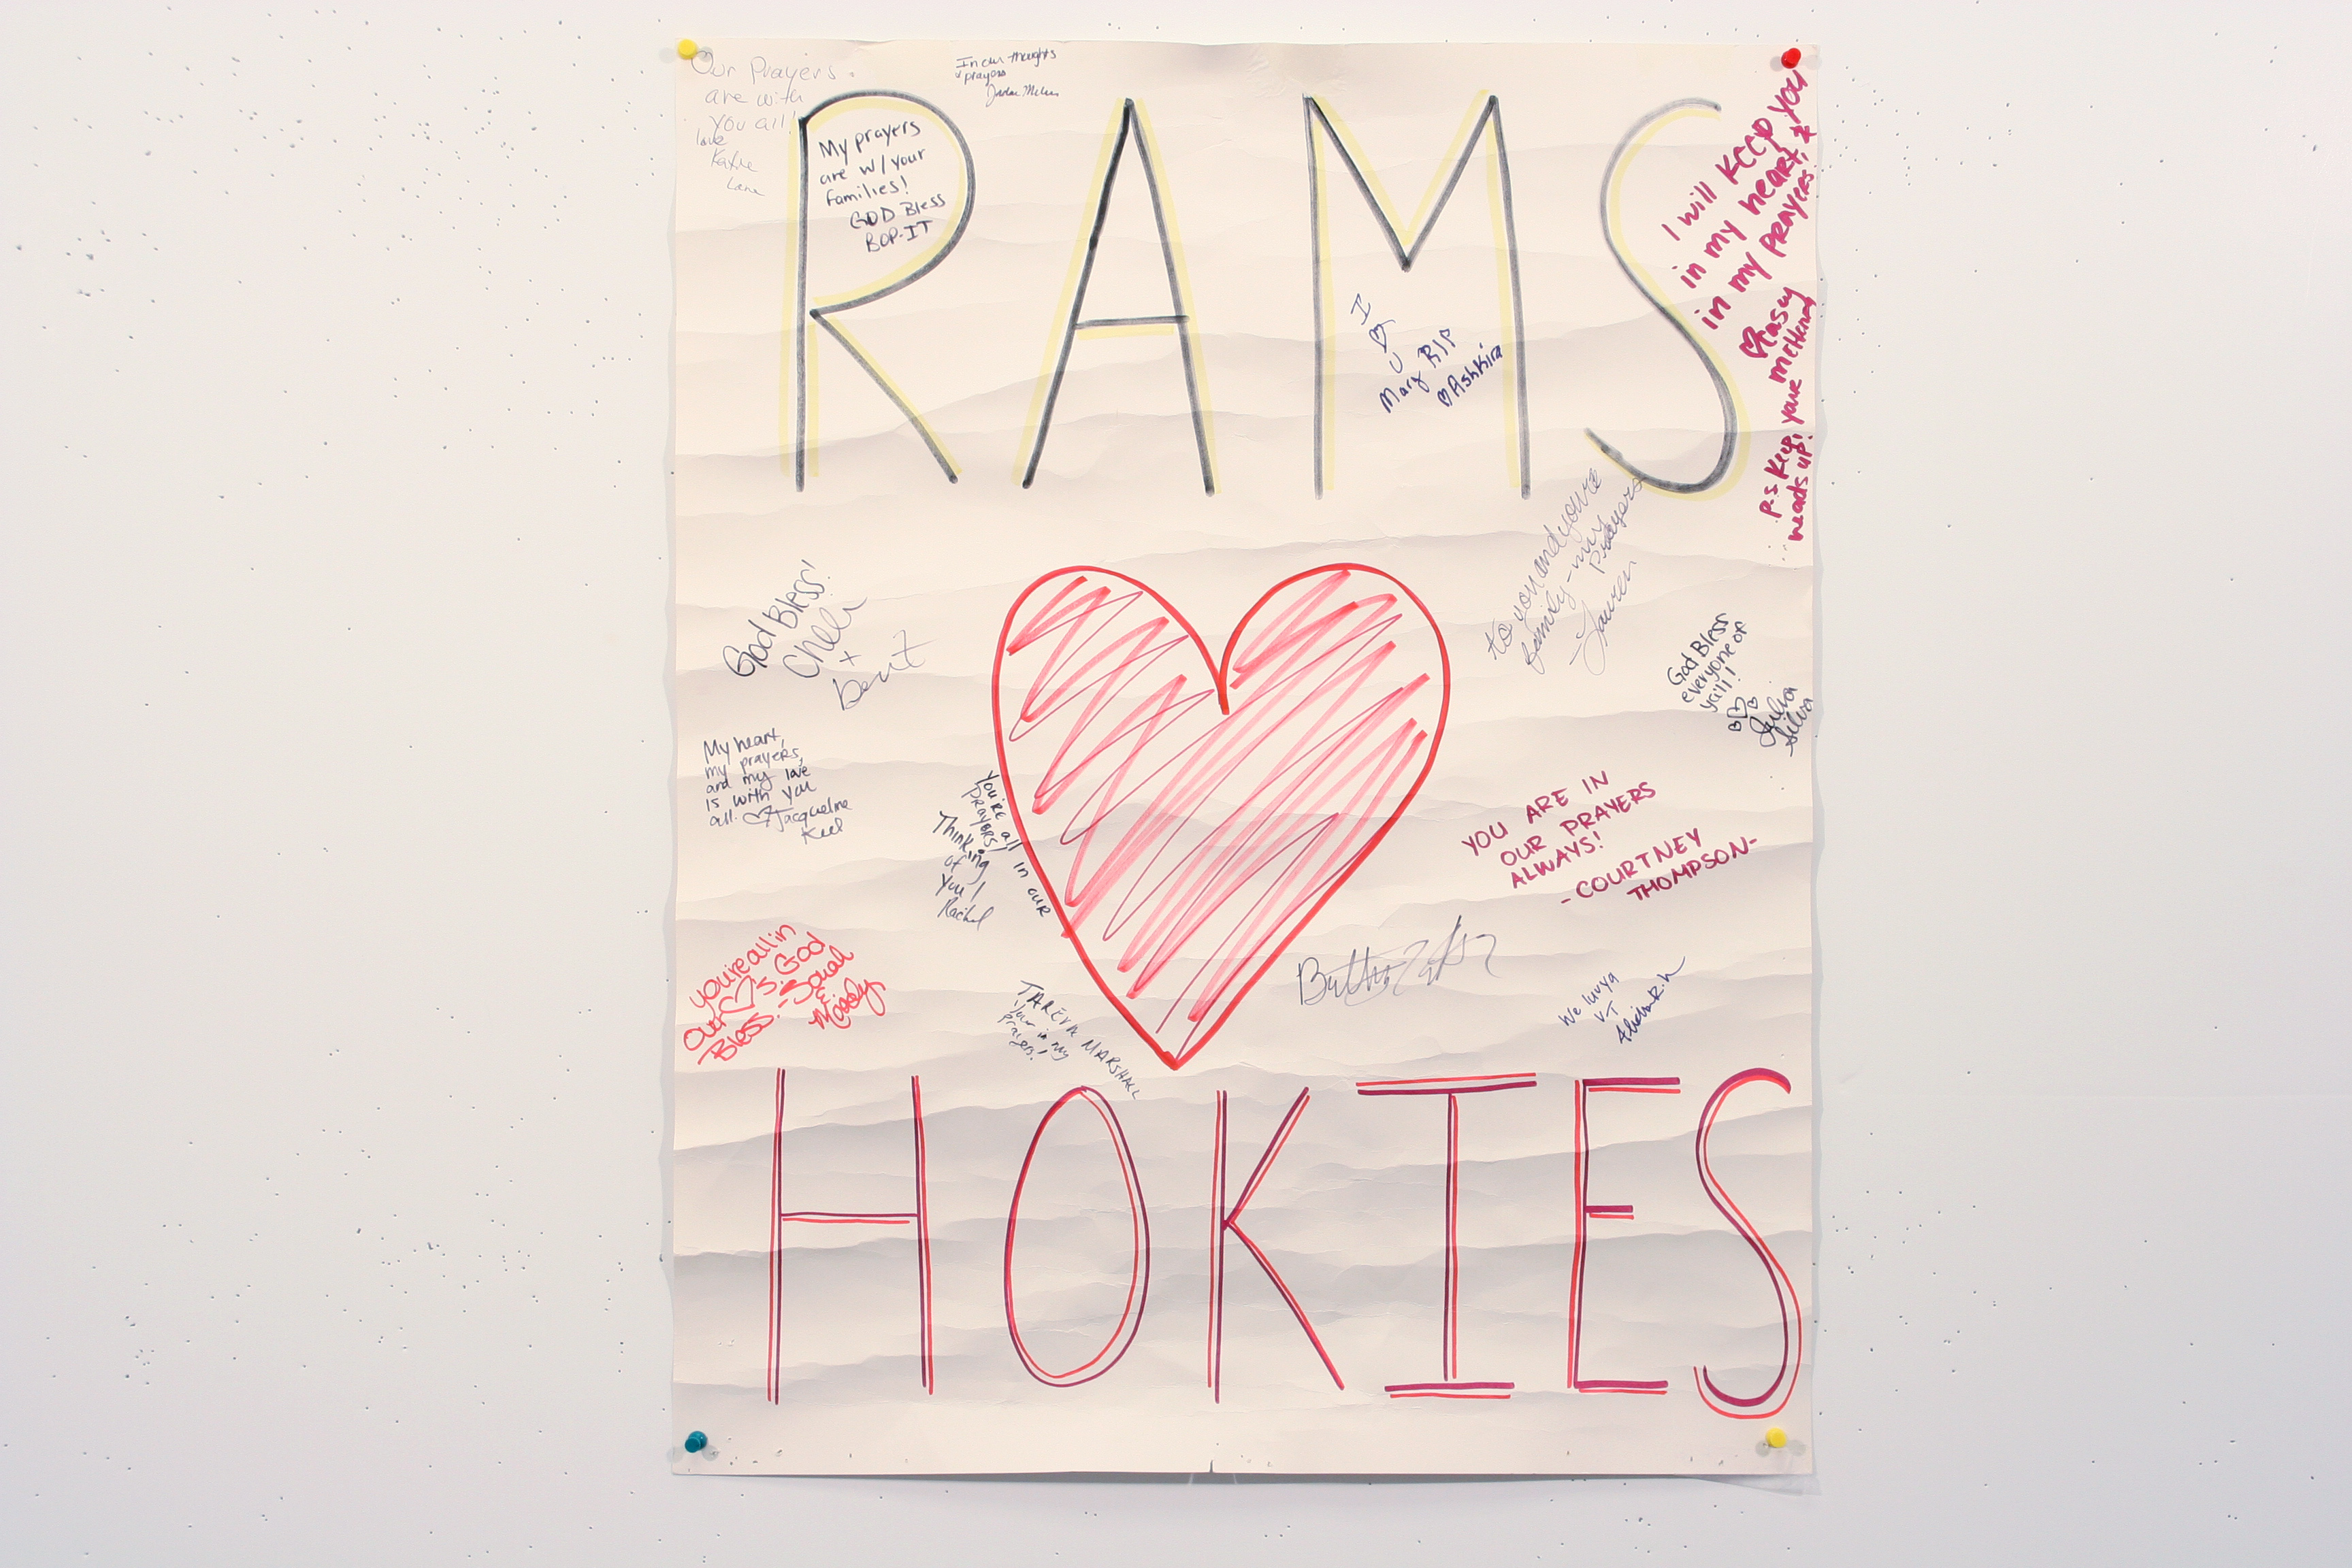 Our Prayers
are with
you all!
love
In our thoughts
& prayers
RAMS
My prayers
are w/ your
families!
GOD Bless
BOP-IT
I will KEEP you
in my heart, &
in my PRAYERS!
♡ Casey
McHenry
P.S. Keep your
heads up!
I
♡
U
Mary RIP
♡ Ashkira
to you and youre
family - my
Prayers
Lauren
God Bless!
+
God Bless
everyone of
ya'll!
Julia
Silva
My heart,
my prayers,
and my love
is with you
all. ♡ Jacqueline
Keel
You're all in our
PRAYERS!
Thinking
of
you!
Rachel
YOU ARE IN
OUR PRAYERS
ALWAYS!
-COURTNEY
THOMPSON-
you're all in
our ♡'s. God
Bless. -Sarah
&
Mandy
TAREYN MARSHALL
Your in my
prayers!
We luvya
VT
HOKIES